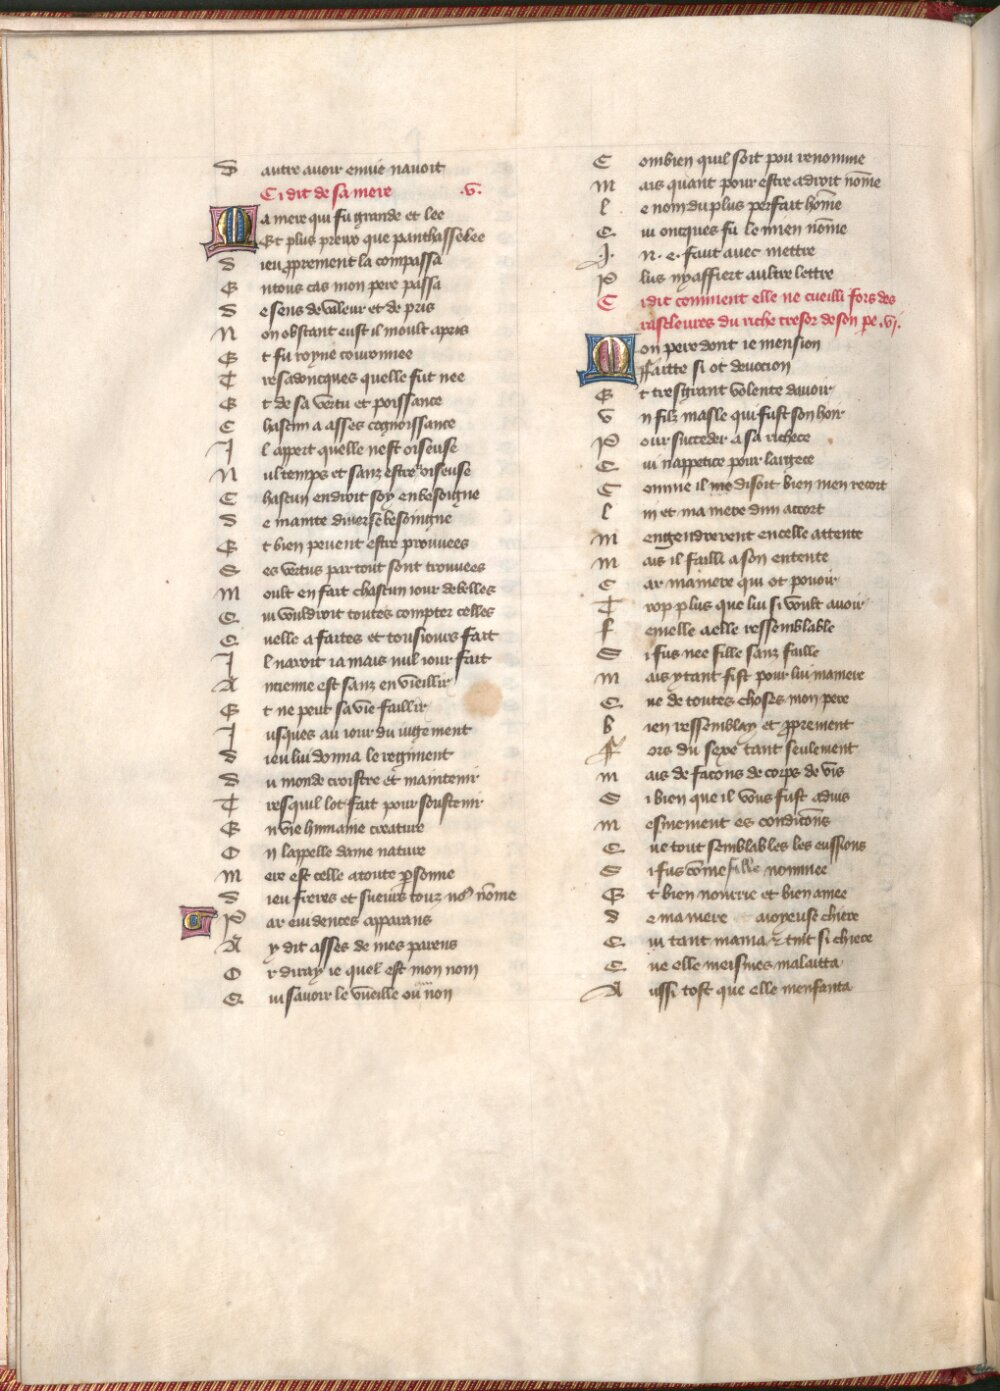 D autre avoir envie navoit
Ci dit de sa mere .v.
Ma mere qui fu grande et lee
Et plus preux que panthassellee
D ieu pprement la compassa
E ntous cas mon pere passa
D e sens de valeur et de pris
N on obstant eust il moult apris
E t fu royne couronnee
T res adoncques quelle fut nee
E t de sa vertu et poissance
C hascun a asses cognoissance
I l appert quelle nest oiseuse
N ul temps et sanz estre oiseuse
C hascun endroit soy enbesoigne
D e mainte diverse besoingne
E t bien peuent estre prouuees
S es vertus partout sont trouuees
M oult en fait chascun iour de belles
Q ui vouldroit toutes compter celles
Q uelle a faites et tousiours fait
I l naroit ia mais nul iour fait
A ncienne est sanz enviellir
E t ne peut sa vie faillir
I usques au iour du iugement
D ieu lui donna le regiment
D u monde croistre et maintenir
T res quil lot fait pour soustenir
E n vie humaine creature
O n lappelle dame nature
M ere est celle atoute psonne
D ieu freres et sueurs touz no9 nome
P ar euidences apparans
A y dit asses de mes parens
O r diray ie quel est mon nom
Q ui savoir le vueille ou non
C ombien quil soit pou renomme
M ais quant pour estre adroit nome
L e nom du plus perfait home
Q ui oncques fu le mien nome
.I. n. e. faut avec mettre
P lus nyaffiert aultre lettre
C i dit coment elle ne cueilli fors des
rascleures du riche tresor de son pe .vi.
Mon pere dont ie mension
Ffaitte si ot devocion
E t tresgrant volente davoir
V n filz masle qui fust son hoir
P our succeder a sa richece
Q ui nappetice pour largece
C omme il me disoit bien men recort
L ui et ma mere dun accort
M engendrerent encelle attente
M ais il failli a son entente
C ar ma mere qui ot pouoir
T rop plus que lui si voult avoir
F emelle a elle ressemblable
S i fus nee fille sanz faille
M ais ytant fist pour lui ma mere
Q ue de toutes choses mon pere
B ien ressemblay et pprement
Ff ors du sexe tant seulement
M ais de facons de corps de vis
S i bien que il vous fust aduis
M esmement es condicons
Q ue tout semblables les eussions
S i fus come fille nommee
E t bien nourrie et bien amee
D e ma mere aioyeuse chiere
Q ui tant mama et tint si chiere
Q ue elle meismes malaitta
A ussi tost que elle menfanta